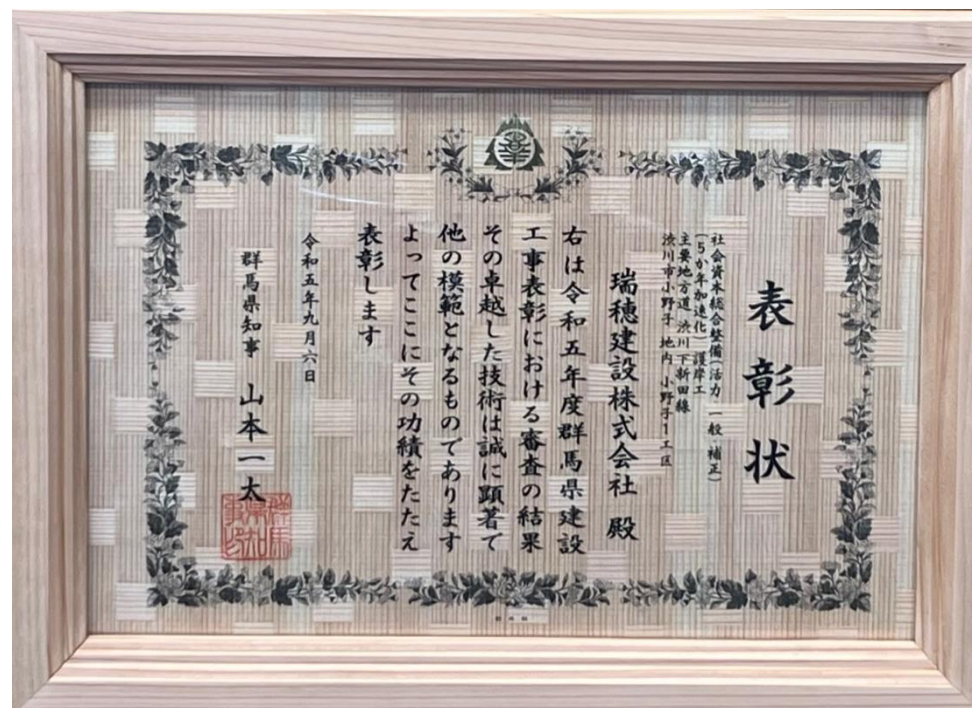 表彰状
社会資本総合整備(活力・一般・補正)
(5か年加速化)護岸工
主要地方道 渋川下新田線
渋川市小野子 地内 小野子1工区
瑞穂建設株式会社 殿
右は令和五年度群馬県建設
工事表彰における審査の結果
その卓越した技術は誠に顕著で
他の模範となるものであります
よってここにその功績をたたえ
表彰します
令和五年九月六日
群馬県知事 山本一太
群馬県知事印